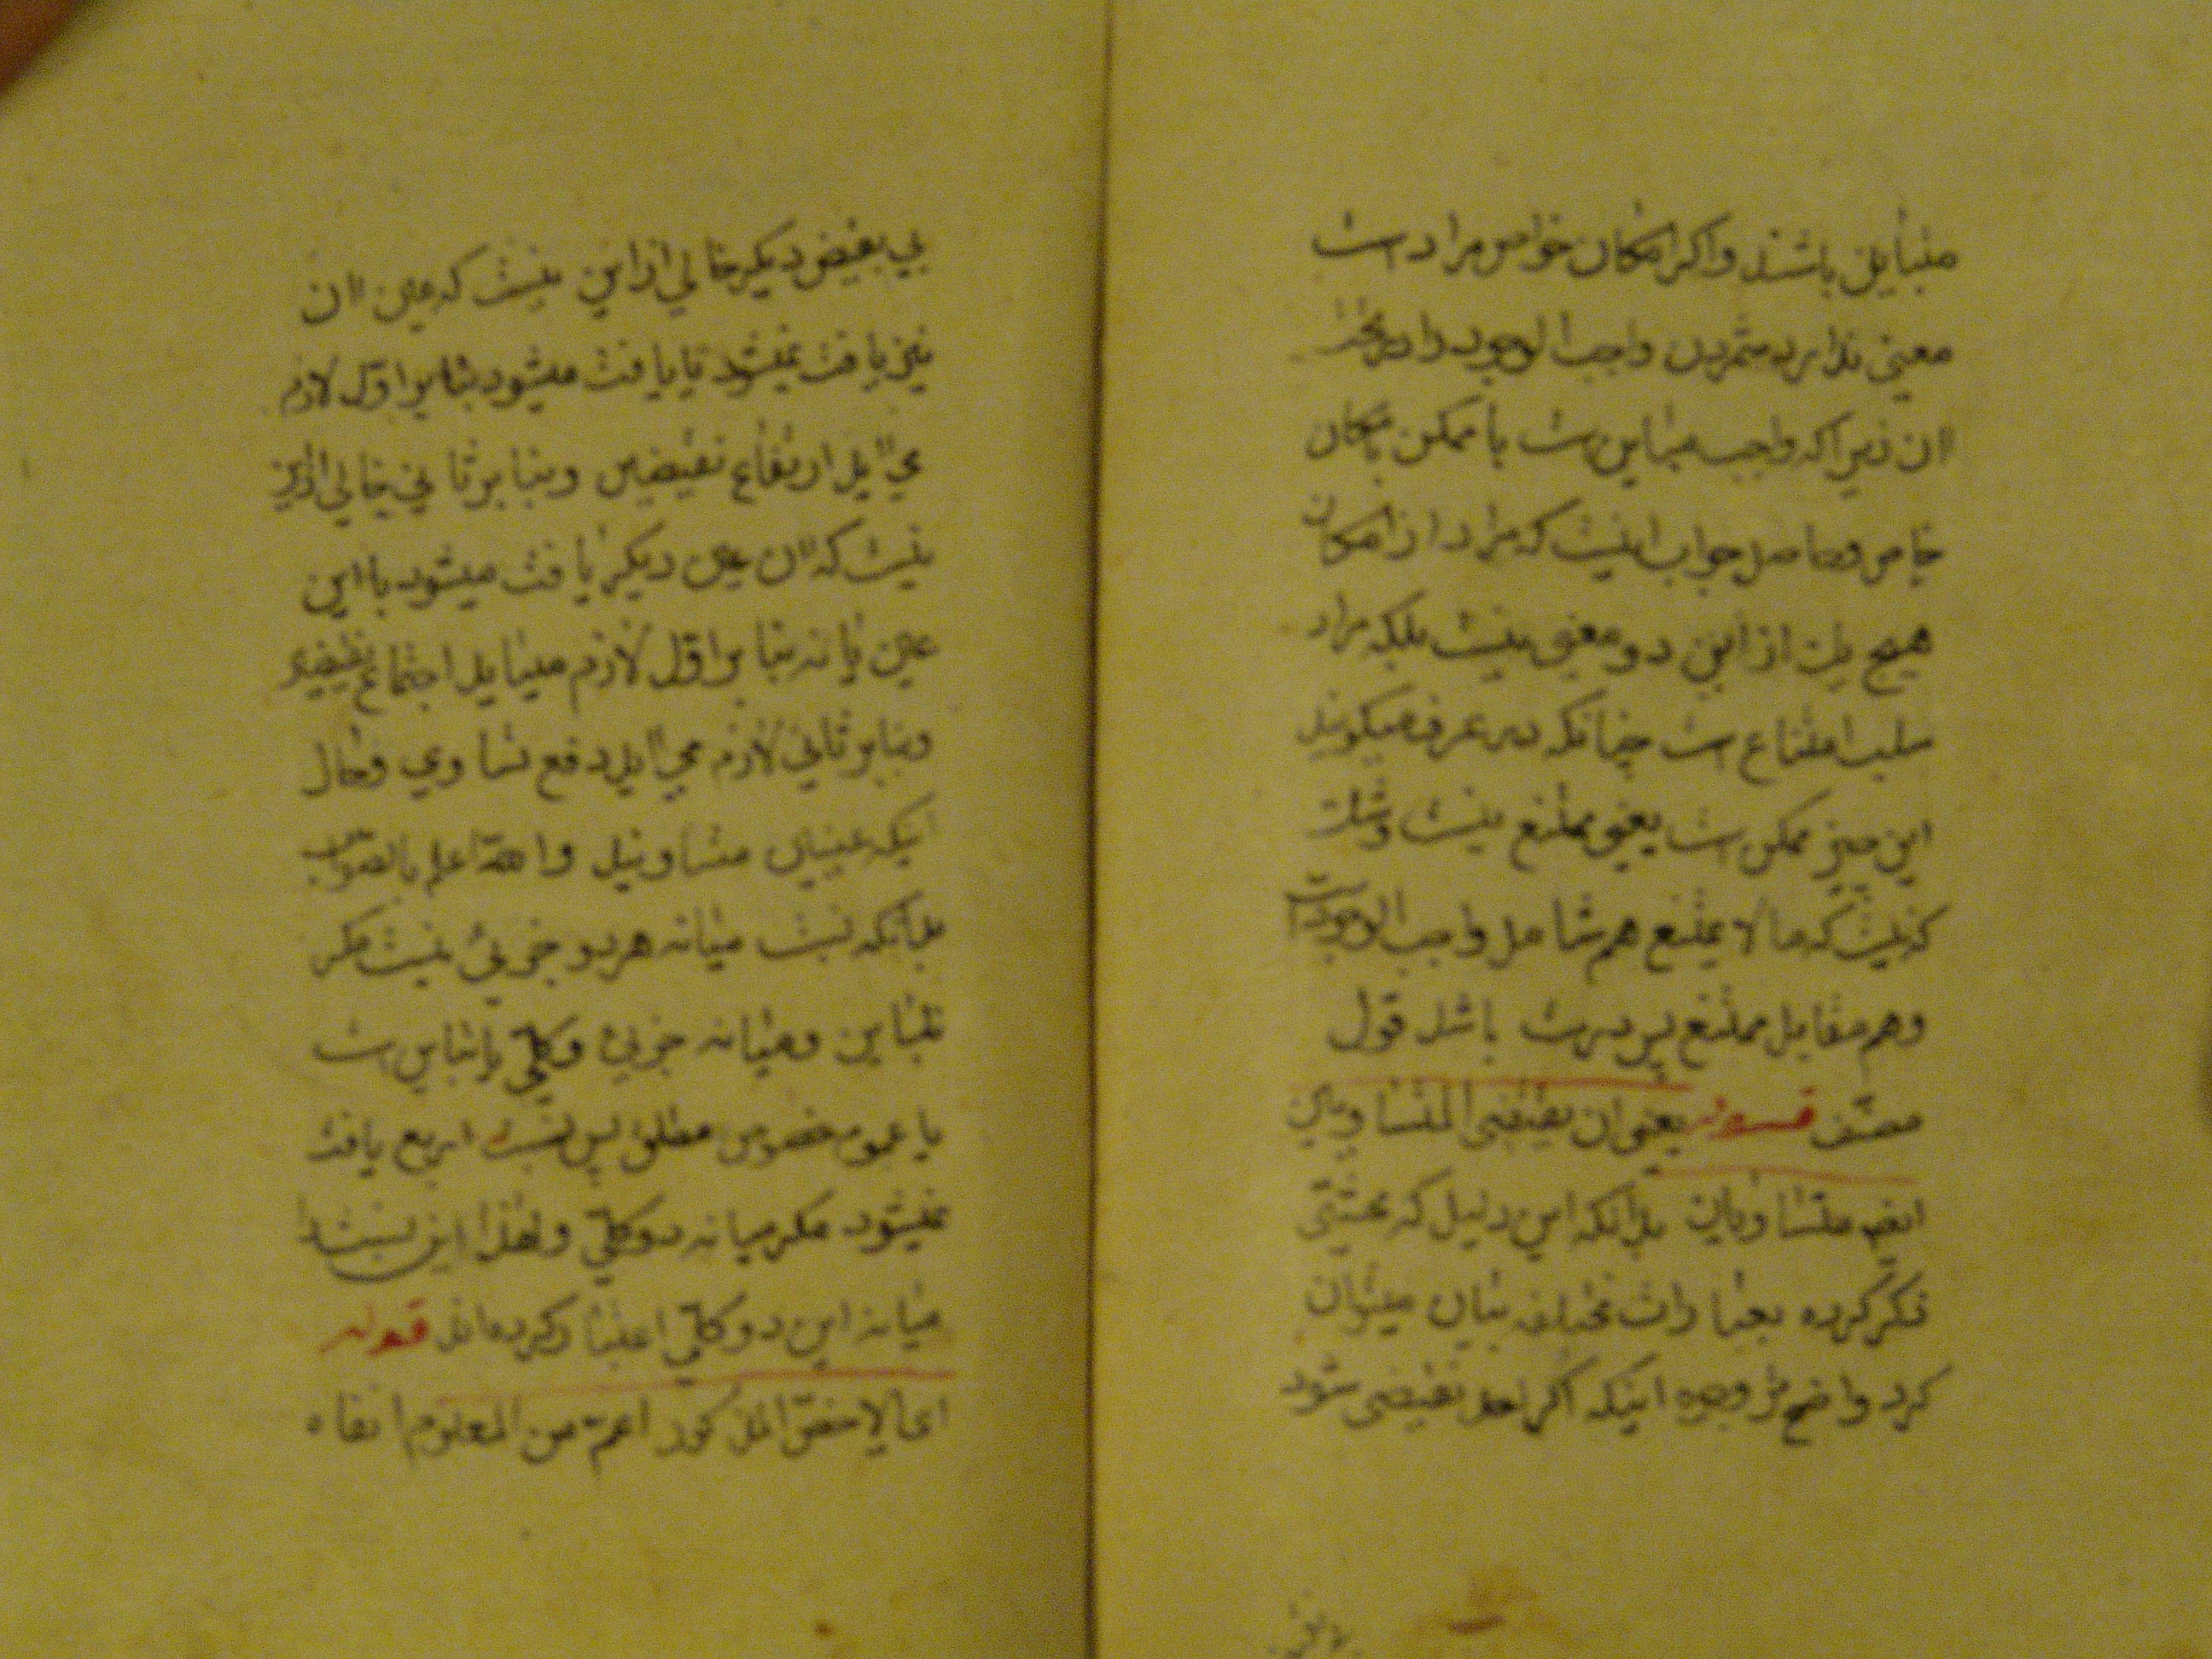 متباین باشند واکر امکان خواص مراد است
معنی ندارد شمردن واجب الوجود را در تحت
ان زیراکه واجب مباین است با ممکن بامکان
خاص وحاصل جواب اینست که مراد از امکان
هیچ یك از این دو معنی نیست بلکه مراد
سلب امتناع است چنانکه در عرف میکویند
این چیز ممکن است یعنی ممتنع نیست وشك
که نیست که ما لا یمتنع هم شامل واجب الوجود است
وهم مقابل ممتنع پس درست باشد قول
مصنف قوله یعنی ان نقیضی المتساویین
ایضا متساویان بدانکه این دلیل که محشی
ذکر کرده بعبارات مختلفه بیان میتوان
کرد واضح تر وجوه اینکه اکر احد نقیضی شود
بی نقیض دیکر خالی از این نیست که عین ان
نیز یافت نمیشود یا یافت میشود بنابر اول لازم
می اید ارتفاع نقیضین وبنابر ثانی خالی از این
نیست که ان عین دیکر یافت میشود با این
عین یا نه بنابر اول لازم میاید اجتماع نقیضین
وبنابر ثانی لازم می اید دفع تساوی وحال
اینکه عینان متساویند والله اعلم بالصواب
بدانکه نسبت میانه هر دو جزئی نیست مکر
تباین ومیانه جزئی وکلی یا تباین است
یا عموم خصوص مطلق پس نسب اربع یافت
نمیشود مکر میانه دو کلی ولهذا این نسبت را
میانه این دو کلی اعتبار کرده اند قوله
ای الاخص المذکور اعم من المعلوم انفاه